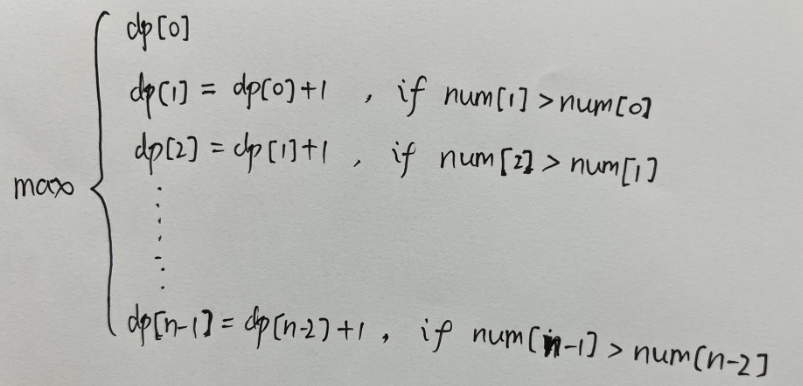 dp[0]
dp[1] = dp[0]+1 , if num[1] > num[0]
dp[2] = dp[1]+1 , if num[2] > num[1]
max
dp[n-1] = dp[n-2]+1 , if num[n-1] > num[n-2]